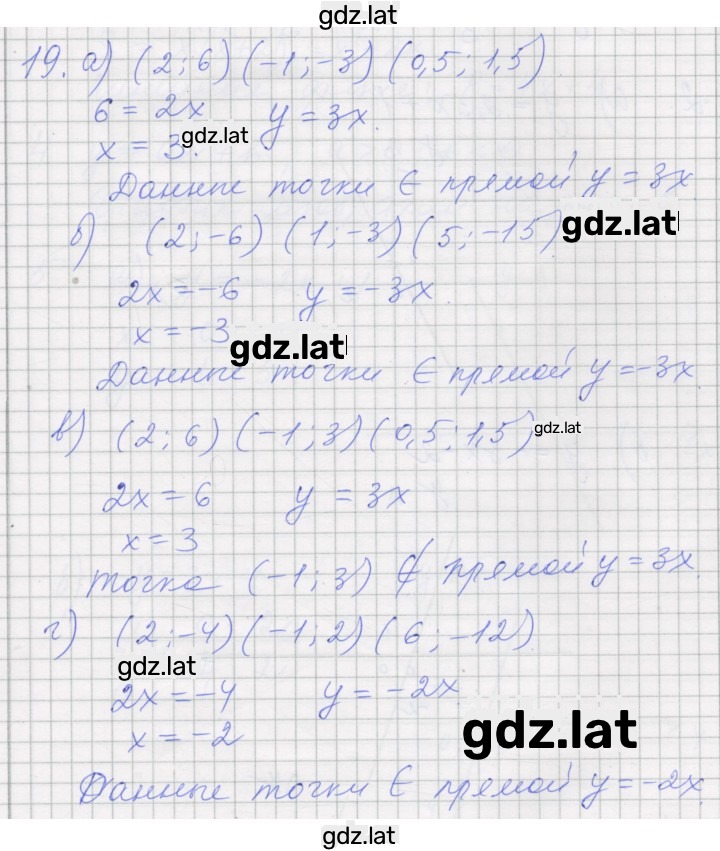 gdz.lat
19. а) (2; 6) (-1; -3) (0,5; 1,5)
6 = 2x y = 3x.
x = 3. gdz.lat
Данные точки ∈ прямой y = 3x
gdz.lat
б) (2; -6) (1; -3) (5; -15)
2x = -6 y = -3x.
x = -3
gdz.lat
Данные точки ∈ прямой y = -3x
в) (2; 6) (-1; 3) (0,5; 1,5) gdz.lat
2x = 6 y = 3x
x = 3
точка (-1; 3) ∉ прямой y = 3x.
г) (2; -4) (-1; 2) (6; -12)
gdz.lat
2x = -4 y = -2x
x = -2
gdz.lat
Данные точки ∈ прямой y = -2x.
gdz.lat